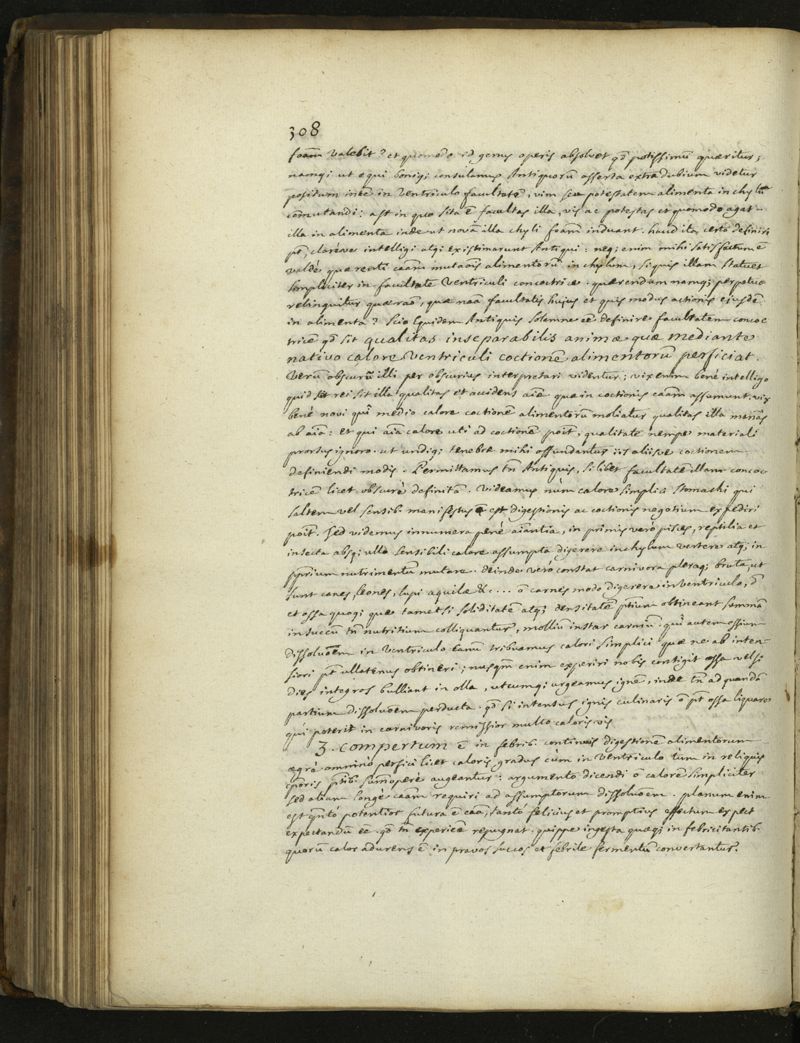 308
foãm valebit? et quomodo id genus operis absolvet qd potissimũ quæritur;
namq; ut æqui boniq; consulamus Antiquorũ asserta extra dubium videtur
positum inẽe in ventriculo facultatẽ, vim seu potestatem alimenta in chylũ
comutandi: ast in quo sita ẽ facultas illa, vis ac potestas et quomodo agat
illa in alimenta inde ut novã illa chyli foãm induant. haud ita certo definiri
põ, clareve intelligi atq; existimarunt Antiqui: neq; enim mihi satisfactum ẽ
valde quærenti cãam mutaõis alimentorũ in chylum, si quis illam statuet
simpliciter in facultate ventriculi concoctrice. quærendum namq; perpetuo
relinquitur quæ raõ, quæ naã facultatis hujus et quis modus actionis ejusdẽ
in alimenta? Scio Equidem Antiquis solemne eẽ definire facultatem concoc
tricẽ qd sit qualitas inseparabilis animæ quæ mediante
nativo calore ventriculi coctionẽ alimentorũ perficiat.
Verũ obscurũ illi per obscurius interpretari videntur; vix enim bene intelligo
quid rei sit illa qualitas et accidens aiæ quæ in coctionis cãam assumunt. vix
bene novi qui medio calore coctionẽ alimentorũ moliatur qualitas illa manãs
ab aiã: et qui aiã calore uti ad coctionẽ poit, qualitate nempe materiali
prorsus ignoro. ut undiq; tenebræ mihi offundantur iis aliisve coctionem
definiendi modis. Permittamus tñ Antiquis, si libet facultatẽ illam concoc
tricẽ licet obscurè definitã. Videamus nùm calore simplici stomachi qui
saltem vel sensib. manifestus est digestionis ac coctionis negotium expediri
poit. Sed videmus innumera penè aiantia, in primis verò pisces, reptilia et
insecta absq; ullo sensibili calore assumpta digerere in chylum vertere atq; in
pprium nutrimentũ mutare. deinde verò constat carnivora pleraq; bruta, ut
sunt canes, leones, lupi aquilæ &c.... õ carnes modo digerere in ventriculo, sd
et ossa quoq; quæ tametsi soliditatẽ atq; densitatẽ ptium obtineant summã
in succũ tñ nutritium colliquantur, mollium instar carniũ. qui autem ossium
dissoluõem in ventriculo eanũ tribuamus calori simplici quæ ne ab inten-
siori pt ullatenus obtineri; nusqm enim experiri nobis contigit ossa vel si
dies integros bulliant in olla, utcumq; urgeamus ignẽ, inde tñ ad quandã
partium dissoluõem perducta. qd si intensus ignis culinaris õ pt ossa liquare
qui poterit in carnivoris remissior multo caloris vis
3. Compertum ẽ in febrib. continuis digestionẽ alimentorum
ægrè omnino perfici licet caloris gradus cùm in ventriculo tùm in reliquis
cporis ptib. summopere augeantur: argumento dicendi õ calorẽ simpliciter
sed aliam longè cãam requiri ad assumptorum dissoluõem. planum enim
est qntò potentior futura ẽ cãa, tantò felicius et promptius effectum expect
expectandũ eẽ. qd tñ experiẽæ repugnat. quippe ingesta quæq; in febricitantib.
quorũ calor adurens ẽ in pravos succos et febrile fermentũ convertantur.